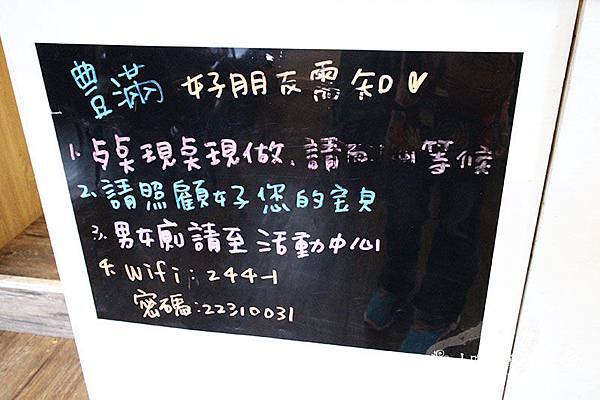 豐滿 好朋友需知♡
1. 点桌現桌現做、請 等候
2. 請照顧好您的宝貝
3. 男女廁請至活動中心
4. Wifi:244-1
密碼:22310031